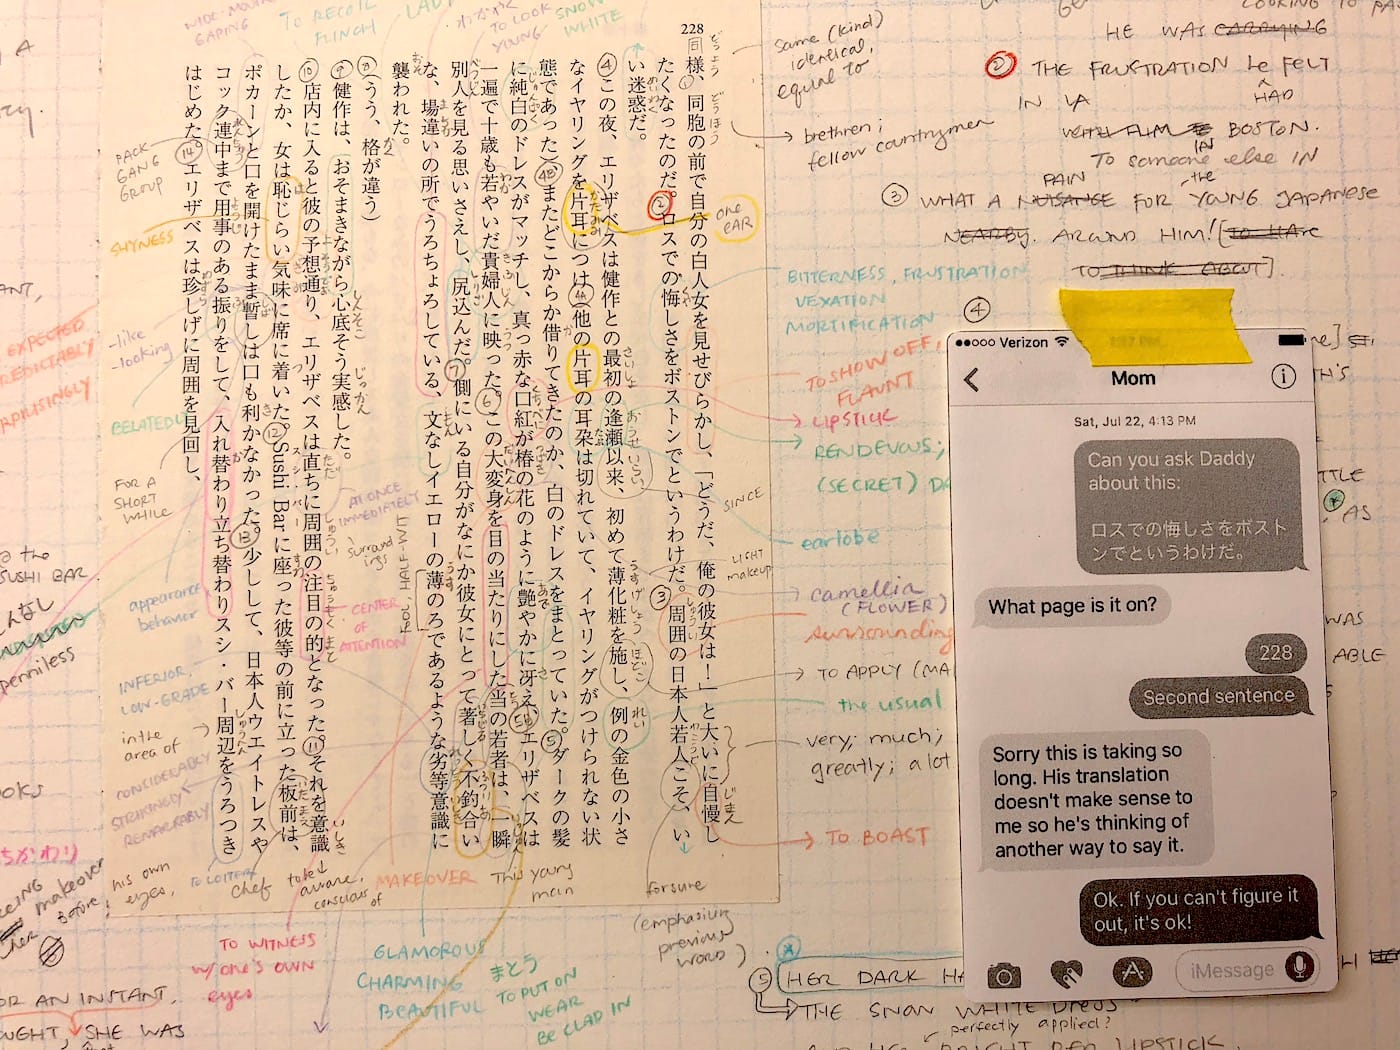 228
同様、同胞の前で自分の白人女を見せびらかし、「どうだ、俺の彼女は！」と大いに自慢し
たくなったのだ。②ロスでの悔しさをボストンでというわけだ。③周囲の日本人若人こそ、い
い迷惑だ。
④この夜、エリザベスは健作との最初の逢瀬以来、初めて薄化粧を施し、例の金色の小さ
なイヤリングを片耳につけ(4A)(他の片耳の耳朶は切れていて、イヤリングがつけられない状
態であった)(4B)またどこからか借りてきたのか、白のドレスをまとっていた。⑤ダークの髪
に純白のドレスがマッチし、真っ赤な口紅が椿の花のように艶やかに冴え、(5B)エリザベスは
一遍で十歳も若やいだ貴婦人に映った。⑥この大変身を目の当たりにした当の若者は、一瞬
別人を見る思いさえし、尻込んだ。⑦側にいる自分がなにか彼女にとって著しく不釣合い
な、場違いの所でうろちょろしている、文なしイエローの薄のろであるような劣等意識に
襲われた。
⑧(うう、格が違う)
⑨健作は、おそまきながら心底そう実感した。
⑩店内に入ると彼の予想通り、エリザベスは直ちに周囲の注目の的となった。⑪それを意識
したか、女は恥じらい気味に席に着いた。⑫Sushi Barに座った彼等の前に立った板前は、
ポカーンと口を開けたまま暫しは口も利かなかった。⑬少しして、日本人ウエイトレスや
コック連中まで用事のある振りをして、入れ替わり立ち替わりスシ・バー周辺をうろつき
はじめた。⑭エリザベスは珍しげに周囲を見回し、
GAPING
TO RECOIL
FLINCH
LAD
TO LOOK
YOUNG
SNOW
WHITE
PACK
GANG
GROUP
SHYNESS
-like
-looking
BELATEDLY
FOR A
SHORT
WHILE
appearance
behavior
INFERIOR,
LOW-GRADE
in the
area of
CONSIDERABLY
STRIKINGLY
REMARKABLY
his own
eyes,
TO LOITER
chef
to be
aware,
conscious
of
MAKEOVER
This young
man
for sure
(emphasizing
previous
word)
AT ONCE
IMMEDIATELY
surroundings
CENTER
OF
ATTENTION
HALF-WIT
one
EAR
SINCE
LIGHT
makeup
TO WITNESS
W/ONE'S OWN
eyes
GLAMOROUS
CHARMING
BEAUTIFUL
まとう
TO PUT ON
WEAR
BE CLAD IN
same (kind)
identical,
equal to
brethren;
fellow countrymen
BITTERNESS, FRUSTRATION
VEXATION
MORTIFICATION
TO SHOW OFF,
FLAUNT
LIPSTICK
RENDEVOUS;
(SECRET) DA
earlobe
camellia
(FLOWER)
surrounding
TO APPLY (MA
the usual
very; much;
greatly; a lot
TO BOAST
EXPECTED
PREDICTABLY
@ the
SUSHI BAR
penniless
makeover
before
OR AN INSTANT,
SHE WAS
LOOKING TO
HE WAS CARRYING
② THE FRUSTRATION he FELT
HAD
IN LA
BOSTON.
IN
TO someone else IN
PAIN
③ WHAT A NUISANCE FOR the YOUNG JAPANESE
NEARBY. AROUND HIM! [TO HAVE
TO THINK ABOUT].
④
⑤ HER DARK HA
THE SNOW WHITE DRESS
perfectly applied?
LIPSTICK
Verizon
Mom
Sat, Jul 22, 4:13 PM
Can you ask Daddy
about this:
ロスでの悔しさをボスト
ンでというわけだ。
What page is it on?
228
Second sentence
Sorry this is taking so
long. His translation
doesn't make sense to
me so he's thinking of
another way to say it.
Ok. If you can't figure it
out, it's ok!
iMessage